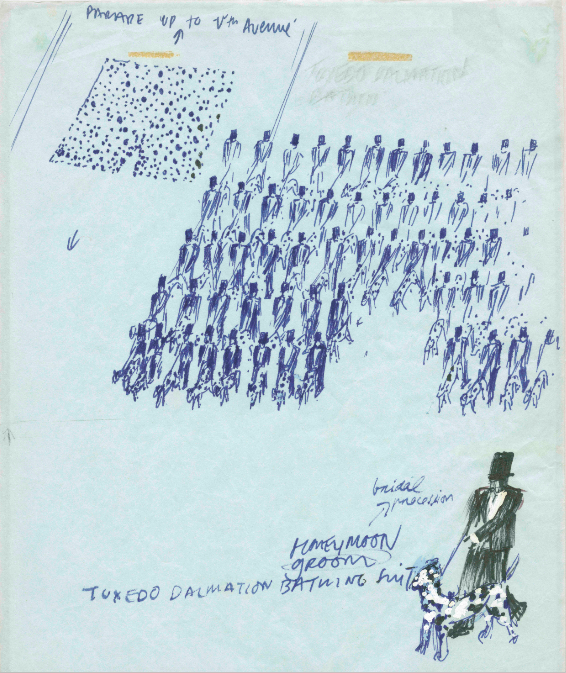 PARADE UP to Vth Avenue
TUXEDO DALMATION
BATHIN
bridal
procession
HONEYMOON
GROOM
TUXEDO DALMATION BATHING SUIT